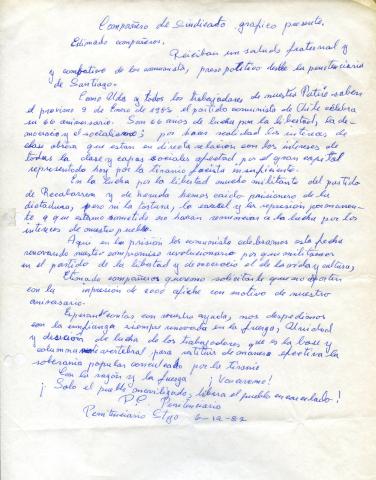 Compañero de Sindicato grafico presente.
Estimado compañeros.
Reciban un saludo fraternal y
y combativo de los comunista, preso politico desde la penitenciaria
de Santiago.
Como Uds y todos los trabajadores de nuestra Patria saben
el proximo 2 de Enero de 1983 el partido comunista de Chile celebra
su 60 aniversario. Son 60 años de lucha por la libertad, la de-
mocracia y el socialismo; por hacer realidad los interes de
clase obrera que estan en directa relacion con los intereses de
todas la clase y capas sociales afectad por el gran capital
representado hoy por la tirania facista
En la lucha por la libertad mucho militante del partido
de Recabarren y el nerudo hemos caido prisionero de la
dictadura, pero ni la tortura, la carcel y la represion permanente
a que estamo sometido no haran renunciar a la lucha por los
interes de nuestro pueblo.
Aqui en la prision los comunista celebramos esta fecha
renovando nuestro compromiso revolucionario por que militamos
en el partido de la libertad y democracia el de la vida y cultura,
Estimado compañeros queremo solicitarle que nos aporten
con la impresion de 2000 afiche con motivo de nuestro
anivasario.
Esperando contar con vuestra ayuda, nos despedimos
con la confianza siempre renovada en la fuerza, Unidad
y decision de lucha de los trabajadores que es la base y
columna vertebral para restituir de manera efectiva la
soberania popular conculcada por la tirania
Con la razón y la fuerza ¡Venceremo!
¡Solo el pueblo movilizado, libera el pueblo encarcelado!
P.C. Penitenciario
Penitenciario Stgo 6-12-82